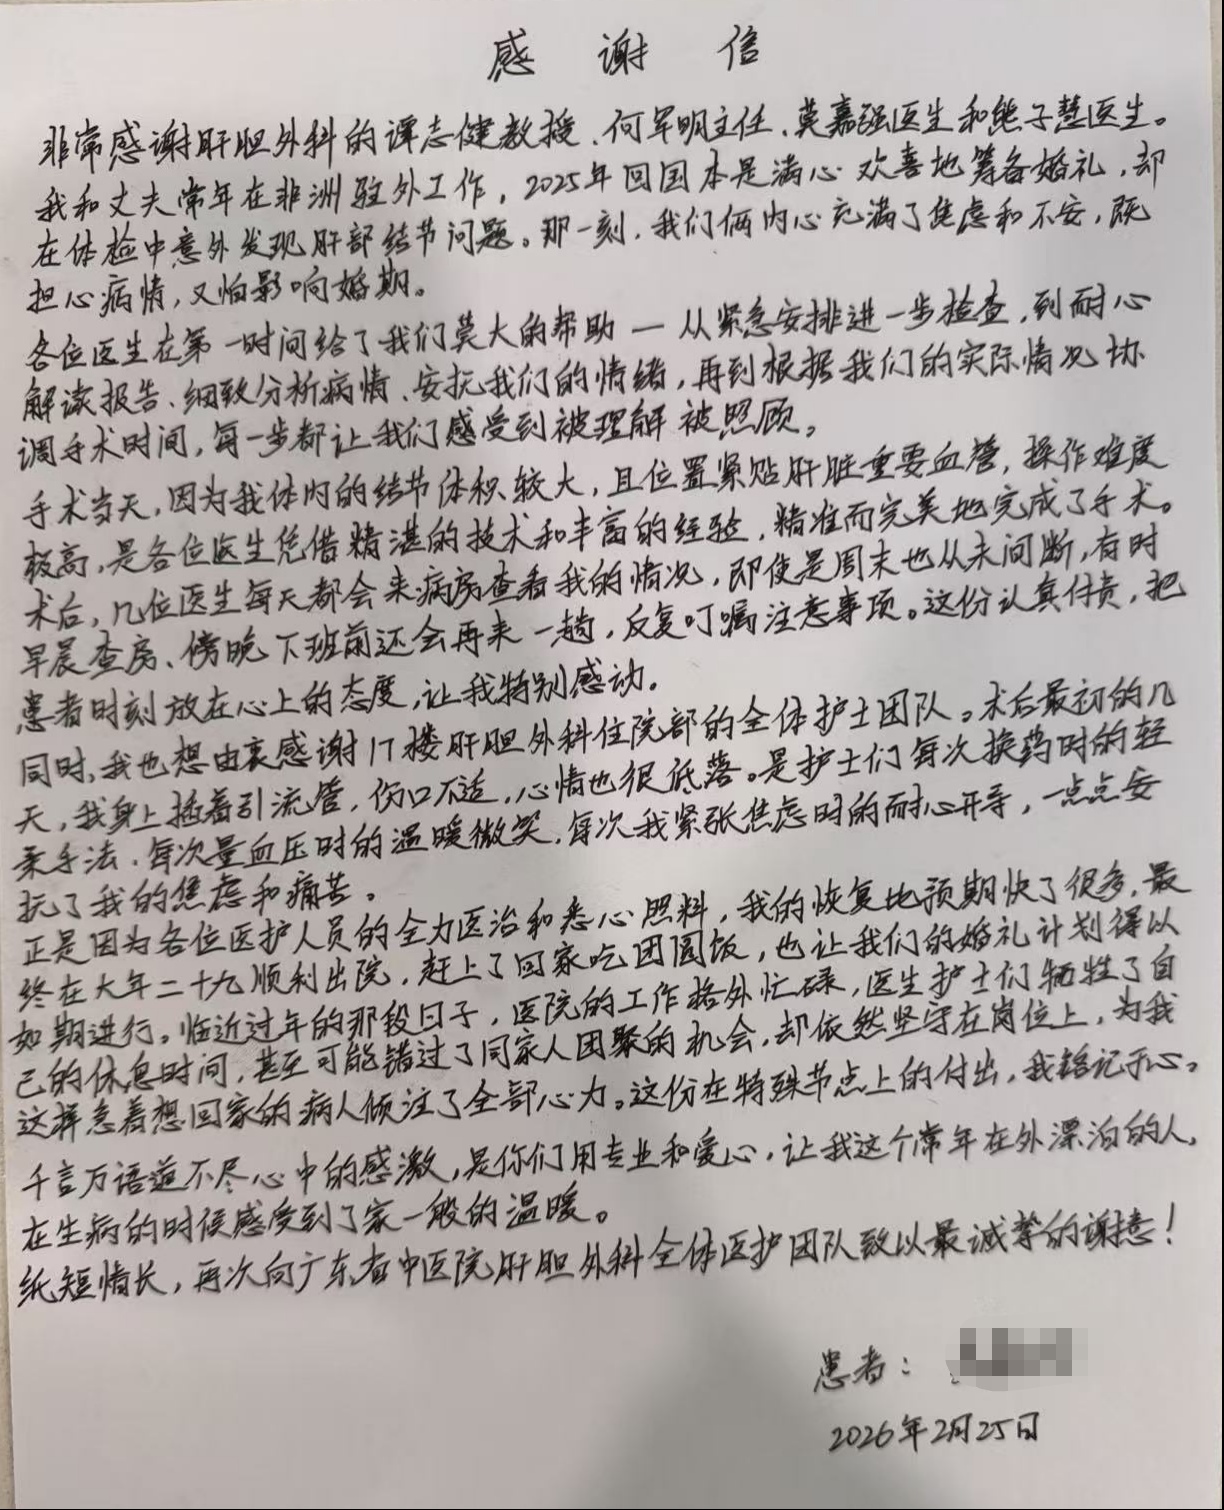 感 谢 信
非常感谢肝胆外科的谭志健教授、何军明主任、莫嘉强医生和熊子慧医生。
我和丈夫常年在非洲驻外工作，2025年回国本是满心欢喜地筹备婚礼，却
在体检中意外发现肝部结节问题。那一刻，我们俩内心充满了焦虑和不安，既
担心病情，又怕影响婚期。
各位医生在第一时间给了我们莫大的帮助—从紧急安排进一步检查，到耐心
解读报告、细致分析病情、安抚我们的情绪，再到根据我们的实际情况协
调手术时间，每一步都让我们感受到被理解被照顾。
手术当天，因为我体内的结节体积较大，且位置紧贴肝脏重要血管，操作难度
极高，是各位医生凭借精湛的技术和丰富的经验，精准而完美地完成了手术。
术后，几位医生每天都会来病房查看我的情况，即使是周末也从未间断，有时
早晨查房、傍晚下班前还会再来一趟，反复叮嘱注意事项。这份认真付责，把
患者时刻放在心上的态度，让我特别感动。
同时，我也想由衷感谢17楼肝胆外科住院部的全体护士团队。术后最初的几
天，我身上插着引流管，伤口不适，心情也很低落。是护士们每次换药时的轻
柔手法、每次量血压时的温暖微笑、每次我紧张焦虑时的耐心开导，一点点安
抚了我的焦虑和痛苦。
正是因为各位医护人员的全力医治和悉心照料，我的恢复地预期快了很多，最
终在大年二十九顺利出院，赶上了回家吃团圆饭，也让我们的婚礼计划得以
如期进行。临近过年的那段日子，医院的工作格外忙碌，医生护士们牺牲了自
己的休息时间，甚至可能错过了同家人团聚的机会，却依然坚守在岗位上，为我
这样急着想回家的病人倾注了全部心力。这份在特殊节点上的付出，我铭记于心。
千言万语道不尽心中的感激，是你们用专业和爱心，让我这个常年在外漂泊的人，
在生病的时候感受到了家一般的温暖。
纸短情长，再次向广东省中医院肝胆外科全体医护团队致以最诚挚的谢意！
患者：
2026年2月25日